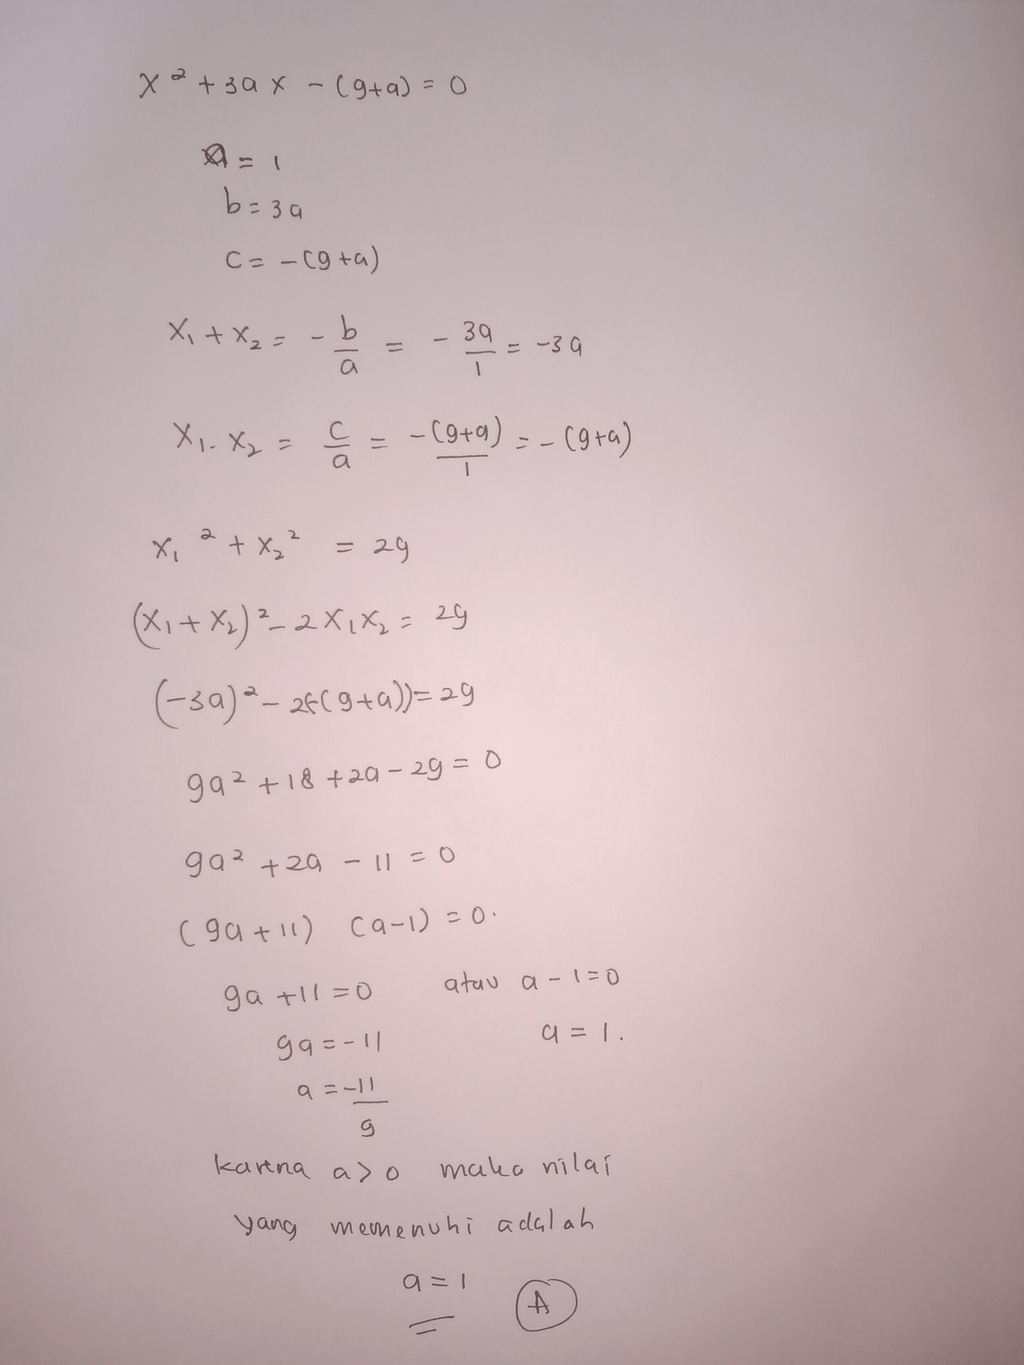 x² + 3a x - (9+a) = 0
a = 1
b = 3a
c = -(9+a)
x₁ + x₂ = - b/a = - 3a/1 = -3a
x₁. x₂ = c/a = -(9+a)/1 = -(9+a)
x₁² + x₂² = 29
(x₁ + x₂)² - 2 x₁x₂ = 29
(-3a)² - 2(-(9+a)) = 29
9a² + 18 + 2a - 29 = 0
9a² + 2a - 11 = 0
(9a + 11) (a-1) = 0.
9a + 11 = 0 atau a - 1 = 0
9a = -11 a = 1.
a = -11/9
karena a > 0 maka nilai
yang memenuhi adalah
a = 1 A